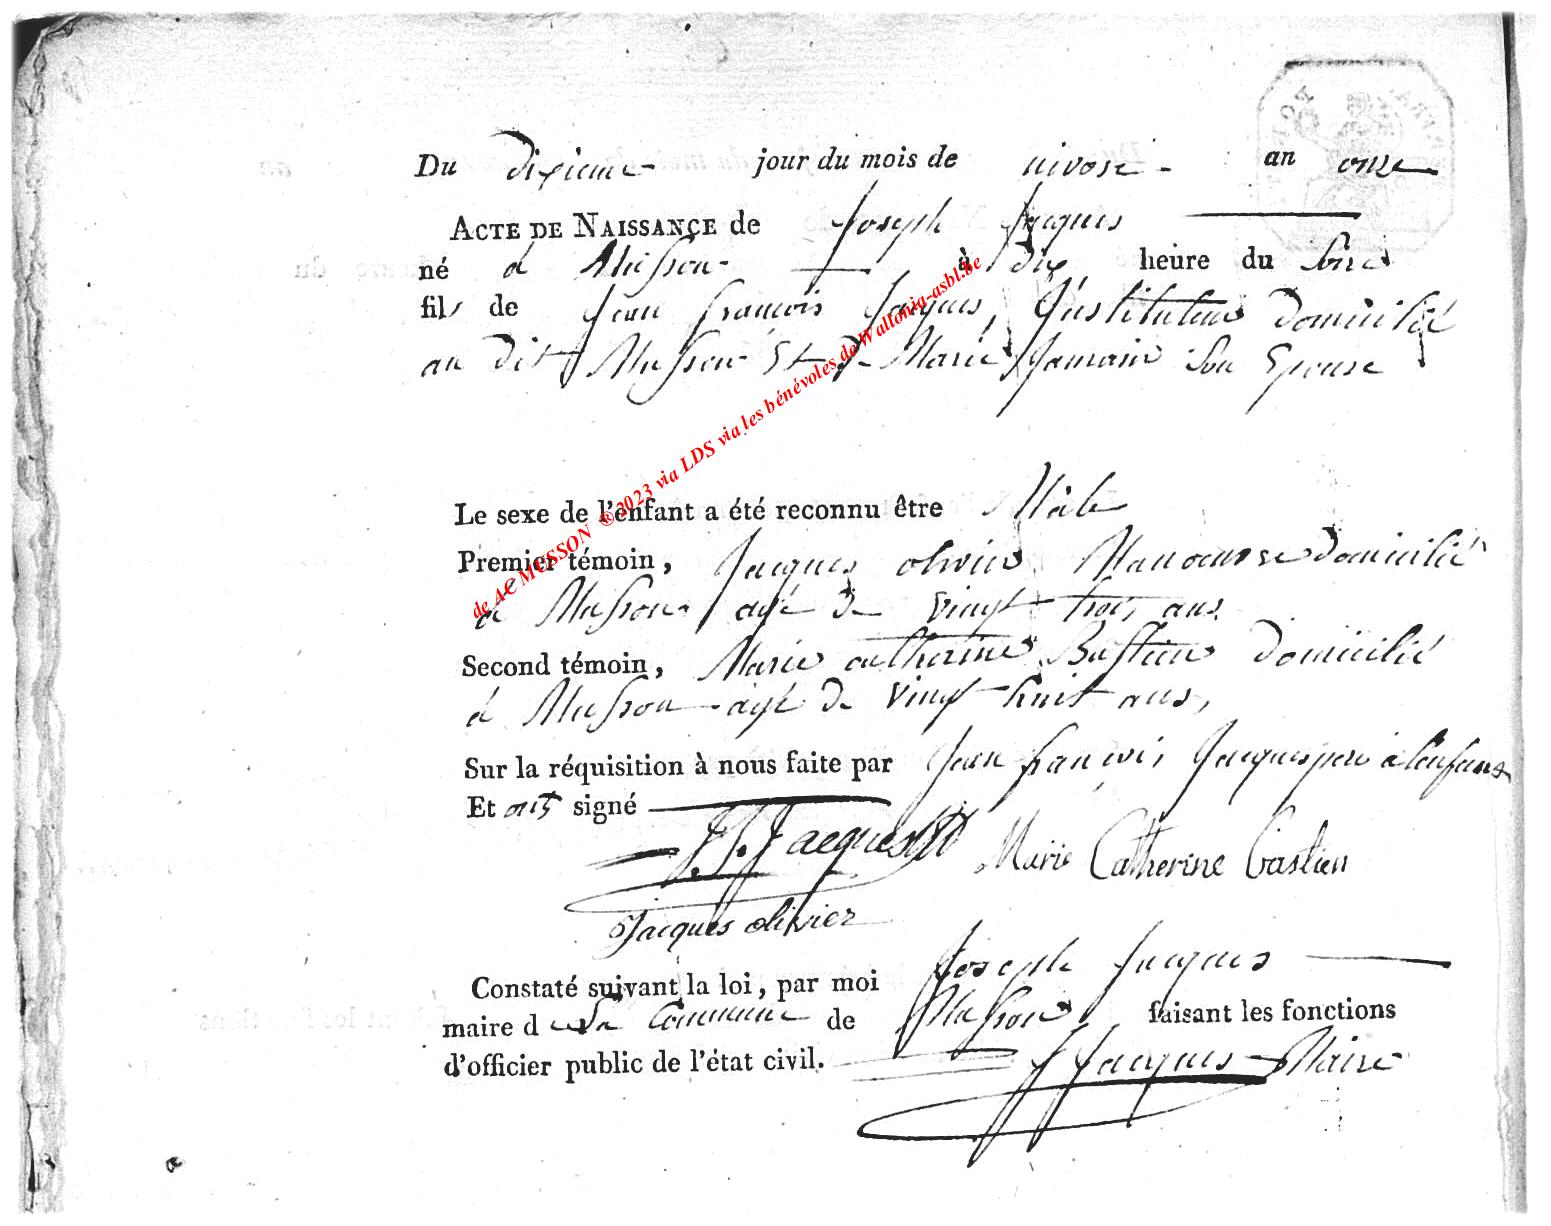 Du dixieme jour du mois de nivose an onze
ACTE DE NAISSANCE de Joseph Jacques
né à Musson à dix heure du Soire
fils de Jean françois Jacques, Instituteur domicilié
au dit Musson Et de Marie Jamain Son Epouse
Le sexe de l'enfant a été reconnu être Mâle
Premier témoin, Jacques olivier Manoeuvre domicilié
à Musson agé de vingt trois ans
Second témoin, Marie catherine Bastien domicilié
à Musson agé de vingt huit ans,
Sur la réquisition à nous faite par Jean françois Jacques pere à l'enfant
Et ont signé
J.f. Jacques Marie Catherine Bastien
Jacques olivier
Constaté suivant la loi, par moi Joseph Jacques
maire de La Commune de Musson faisant les fonctions
d'officier public de l'état civil. J Jacques Maire
de AC MUSSON ©2023 via LDS via les bénévoles de Wallonia-asbl.be